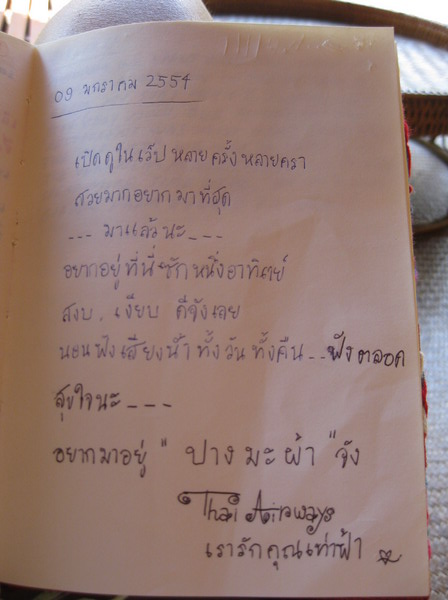 09 มกราคม 2554
เปิดดูในเว็ป หลายครั้งหลายครา
สวยมากอยากมาที่สุด
--- มาแล้วนะ ---
อยากอยู่ที่นี่ซักหนึ่งอาทิตย์
สงบ, เงียบ ดีจังเลย
นอนฟังเสียงน้ำ ทั้งวันทั้งคืน -- ฟังตลอด
สุขใจนะ ---
อยากมาอยู่ " ปางมะผ้า " จัง
Thai Airways
เรารักคุณเท่าฟ้า